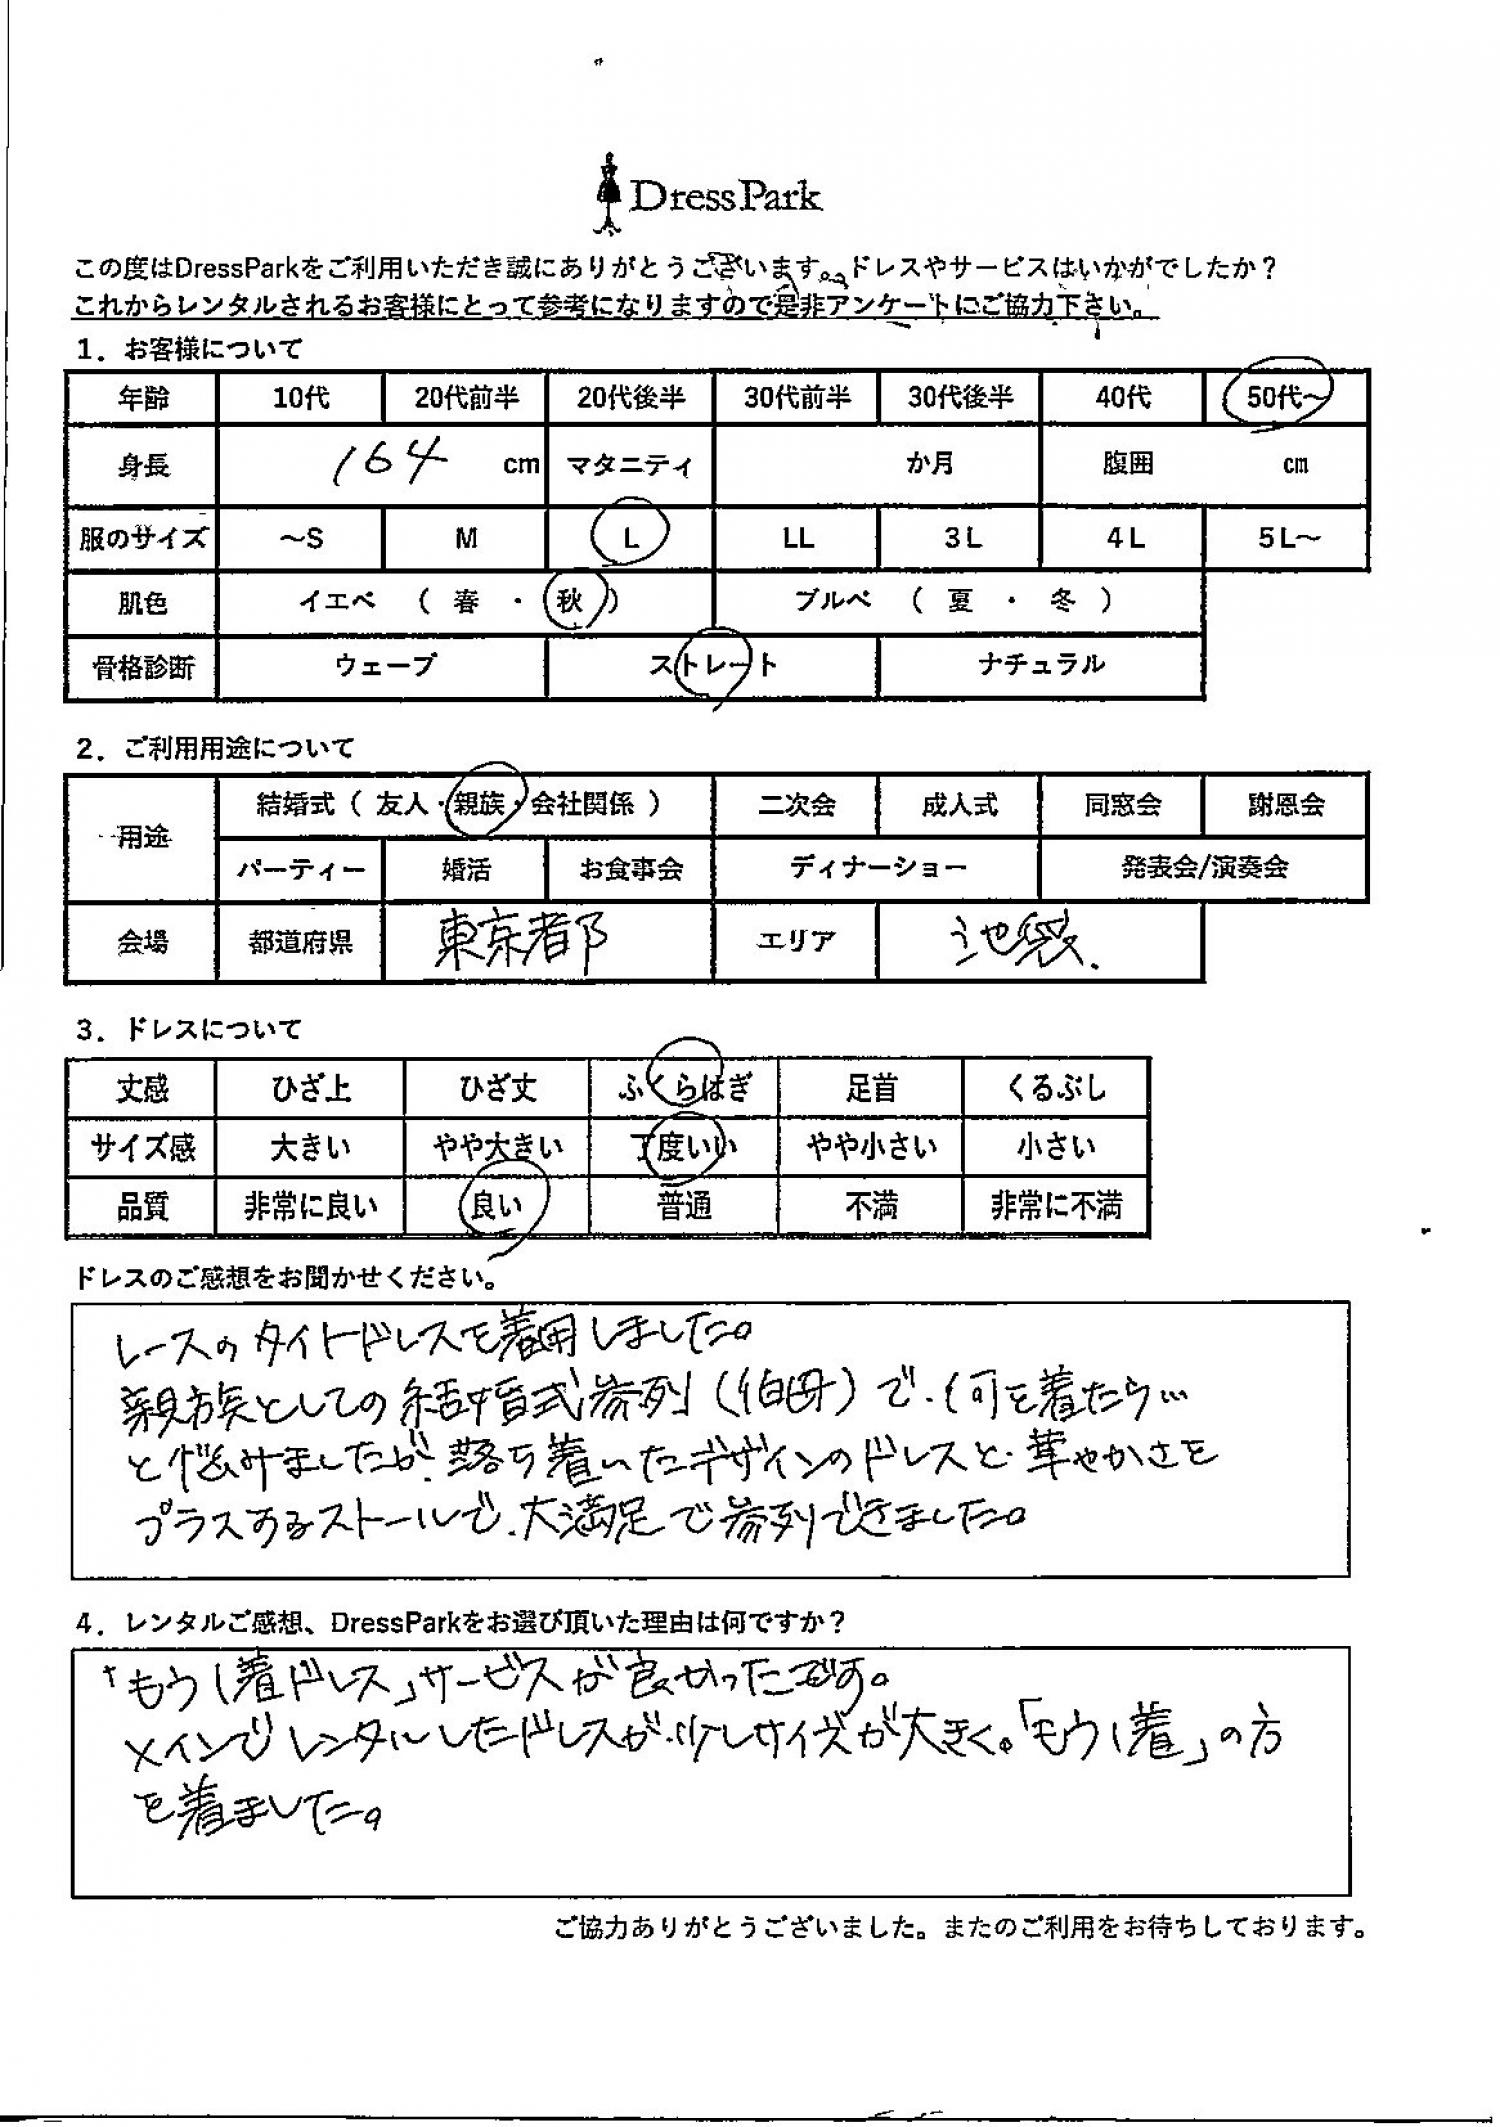 DressPark
この度はDressParkをご利用いただき誠にありがとうございます。ドレスやサービスはいかがでしたか？
これからレンタルされるお客様にとって参考になりますので是非アンケートにご協力下さい。
1．お客様について
年齢 10代 20代前半 20代後半 30代前半 30代後半 40代 50代～
身長 164 cm マタニティ か月 腹囲 cm
服のサイズ ～S M L LL 3L 4L 5L～
肌色 イエベ （ 春 ・ 秋 ） ブルベ （ 夏 ・ 冬 ）
骨格診断 ウェーブ ストレート ナチュラル
2．ご利用用途について
用途 結婚式（ 友人・親族・会社関係 ） 二次会 成人式 同窓会 謝恩会
パーティー 婚活 お食事会 ディナーショー 発表会/演奏会
会場 都道府県 東京都 エリア 池袋.
3．ドレスについて
丈感 ひざ上 ひざ丈 ふくらはぎ 足首 くるぶし
サイズ感 大きい やや大きい 丁度いい やや小さい 小さい
品質 非常に良い 良い 普通 不満 非常に不満
ドレスのご感想をお聞かせください。
レースのタイトドレスを着用しました。
親族としての結婚式参列（伯母）で、何を着たら…
と悩みましたが、落ち着いたデザインのドレスと、華やかさを
プラスするストールで、大満足で参列できました。
4．レンタルご感想、DressParkをお選び頂いた理由は何ですか？
「もう1着ドレス」サービスが良かったです。
メインでレンタルしたドレスが、少しサイズが大きく。「もう1着」の方
を着ました。
ご協力ありがとうございました。またのご利用をお待ちしております。